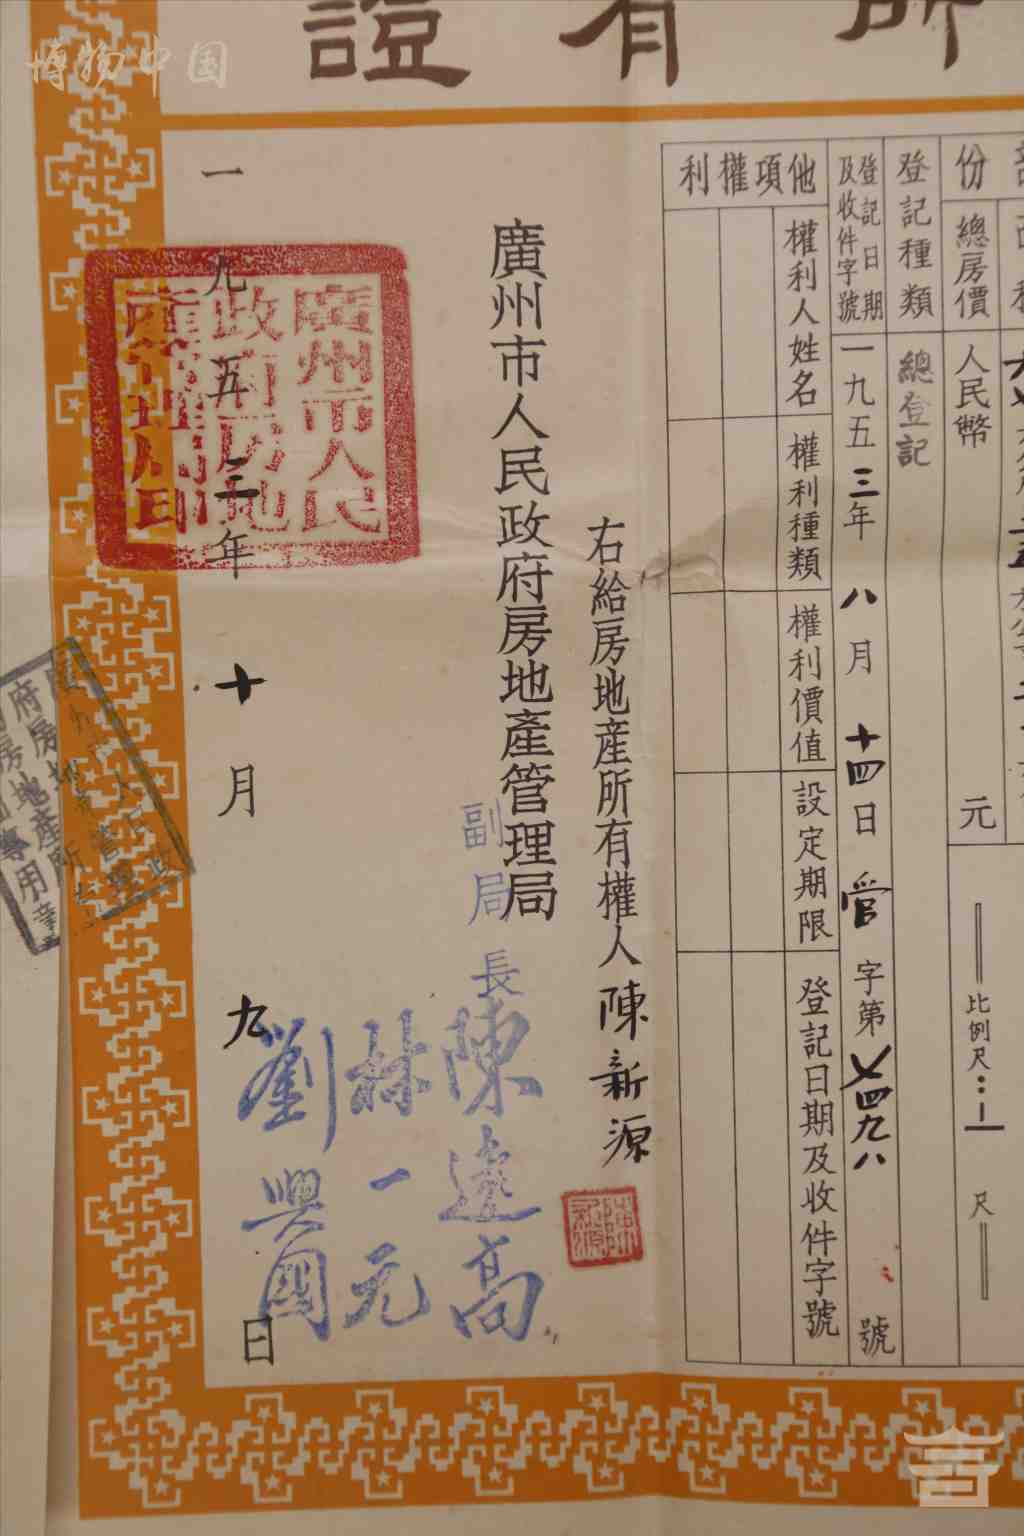 博物中国
所有證
份
總房價
人民幣
元
比例尺:1
尺
登記種類
總登記
登記日期
及收件字號
一九五三年八月十四日管字第〤四九八號
他項權利
權利人姓名
權利種類
權利價值
設定期限
登記日期及收件字號
右給房地產所有權人陳新源
廣州市人民政府房地產管理局
副局長
陳遠高
林一元
劉興國
廣州市人民
政府房地
產管理局印
一九五三年十月九日